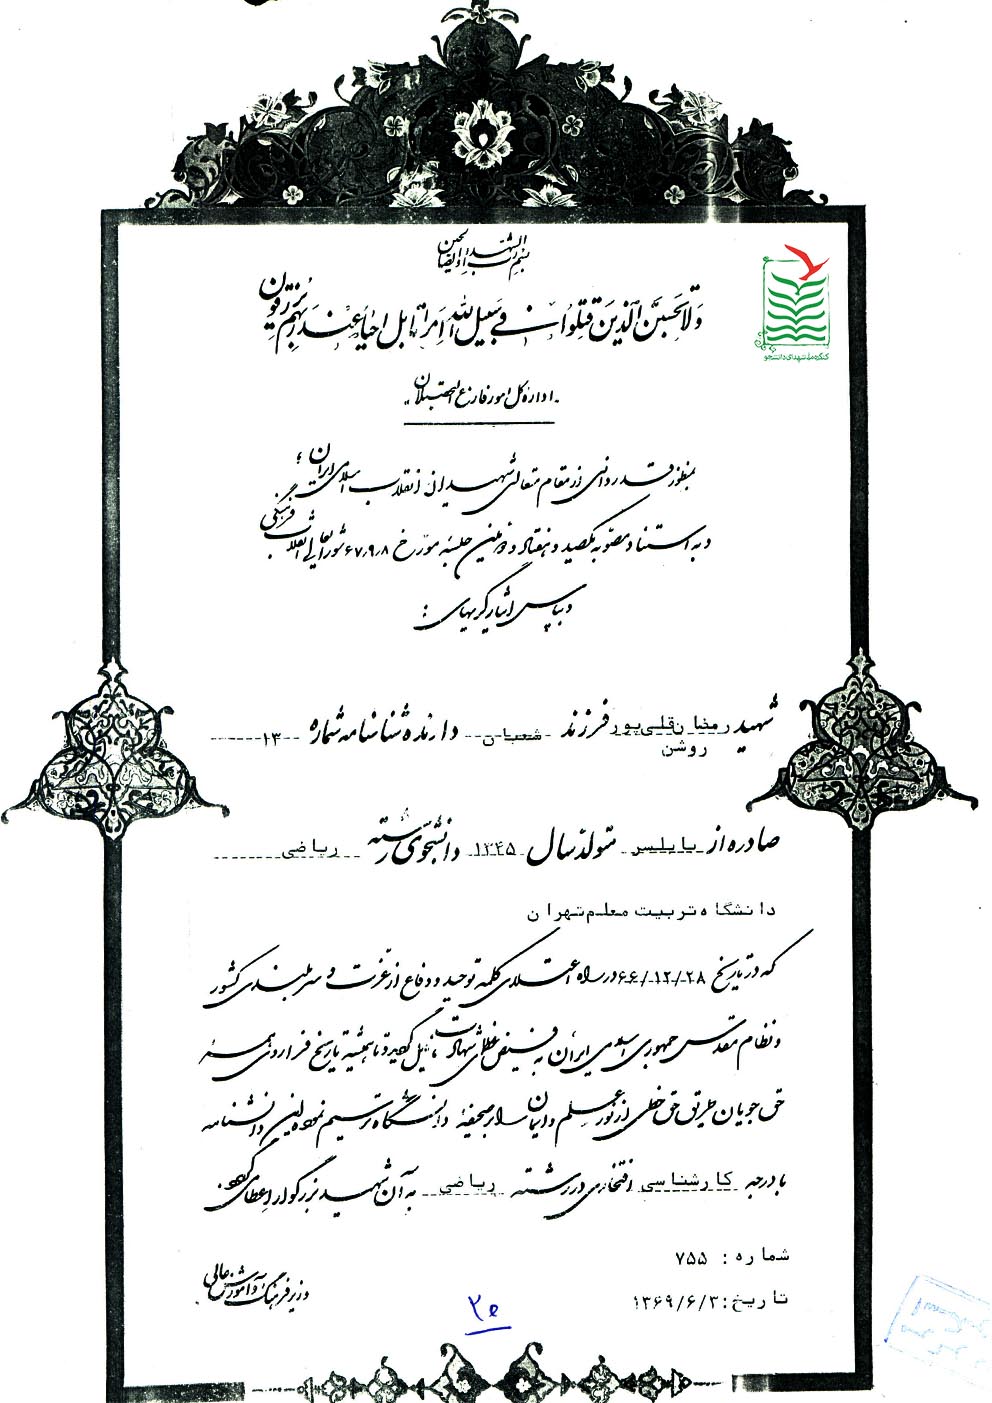 بسم رب الشهداء و الصالحین
وَلا تَحْسَبَنَّ الَّذینَ قُتِلُوا فی سَبیلِ اللهِ اَمْواتاً بَلْ اَحْیاءٌ عِنْدَ رَبِّهِمْ یُرْزَقُونَ
کنگره ملی شهدای دانشجو
اداره کل امور فارغ التحصیلان
بمنظور قدردانی از مقام متعالی شهیدان انقلاب اسلامی ایران ؛
و به استناد مصوبه یکصد و هفتاد و دومین جلسه مورخ ۶۷٫۹٫۸ شورایعالی انقلاب فرهنگی
و بپاس ایثارگریهای :
شهید رمضان قلی‌پور فرزند شعبان دارنده شناسنامه شماره ۱۳
روشن
صادره از بابلسر متولد سال ۱۳۴۵ دانشجوی رشته ریاضی
دانشگاه تربیت معلم تهران
که در تاریخ ۶۶/۱۲/۲۸ در راه اعتلای کلمه توحید و دفاع از عزت و سربلندی کشور
و نظام مقدس جمهوری اسلامی ایران به فیض عظمای شهادت نایل گردید و تا همیشه تاریخ فراروی همه
حق جویان طریق حق خطی از نور علم و ایمان را بر صحیفه دانشگاه ترسیم نمود این دانشنامه
با درجه کارشناسی افتخاری در رشته ریاضی به آن شهید بزرگوار اعطا می‌گردد.
شماره : ۷۵۵
تاریخ : ۱۳۶۹/۶/۳
وزیر فرهنگ و آموزش عالی